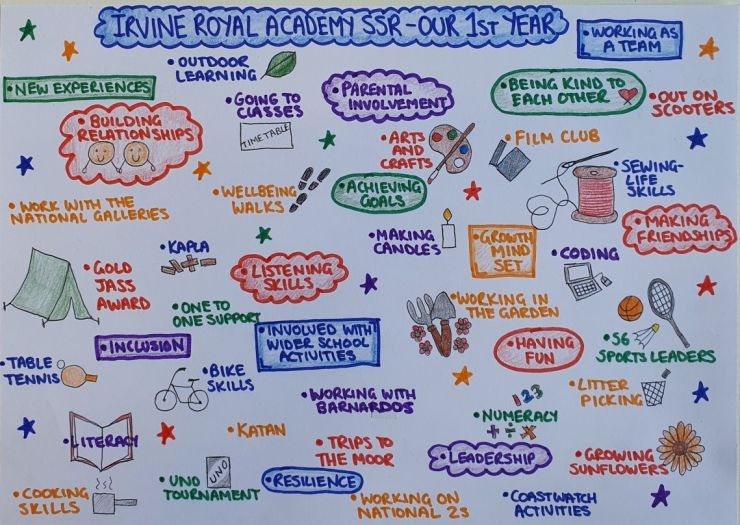 IRVINE ROYAL ACADEMY SSR - OUR 1ST YEAR
• WORKING AS
A TEAM
• OUTDOOR
LEARNING
• NEW EXPERIENCES
• GOING TO
CLASSES
TIMETABLE
• PARENTAL
INVOLVEMENT
• BEING KIND TO
EACH OTHER
• OUT ON
SCOOTERS
• BUILDING
RELATIONSHIPS
• ARTS
AND
CRAFTS
• FILM CLUB
• SEWING-
LIFE
SKILLS
• WORK WITH THE
NATIONAL GALLERIES
• WELLBEING
WALKS
• ACHIEVING
GOALS
• MAKING
FRIENDSHIPS
• KAPLA
• MAKING
CANDLES
• GROWTH
MIND
SET
• CODING
• GOLD
JASS
AWARD
• LISTENING
SKILLS
• ONE TO
ONE SUPPORT
• WORKING IN
THE GARDEN
• INCLUSION
• INVOLVED WITH
WIDER SCHOOL
ACTIVITIES
• HAVING
FUN
• S6
SPORTS LEADERS
• TABLE
TENNIS
• BIKE
SKILLS
• WORKING WITH
BARNARDOS
123
• NUMERACY
+ ÷ ×
• LITTER
PICKING
• LITERACY
• KATAN
• TRIPS TO
THE MOOR
• LEADERSHIP
• GROWING
SUNFLOWERS
• COOKING
SKILLS
• UNO
TOURNAMENT
UNO
• RESILIENCE
• WORKING ON
NATIONAL 2S
• COASTWATCH
ACTIVITIES